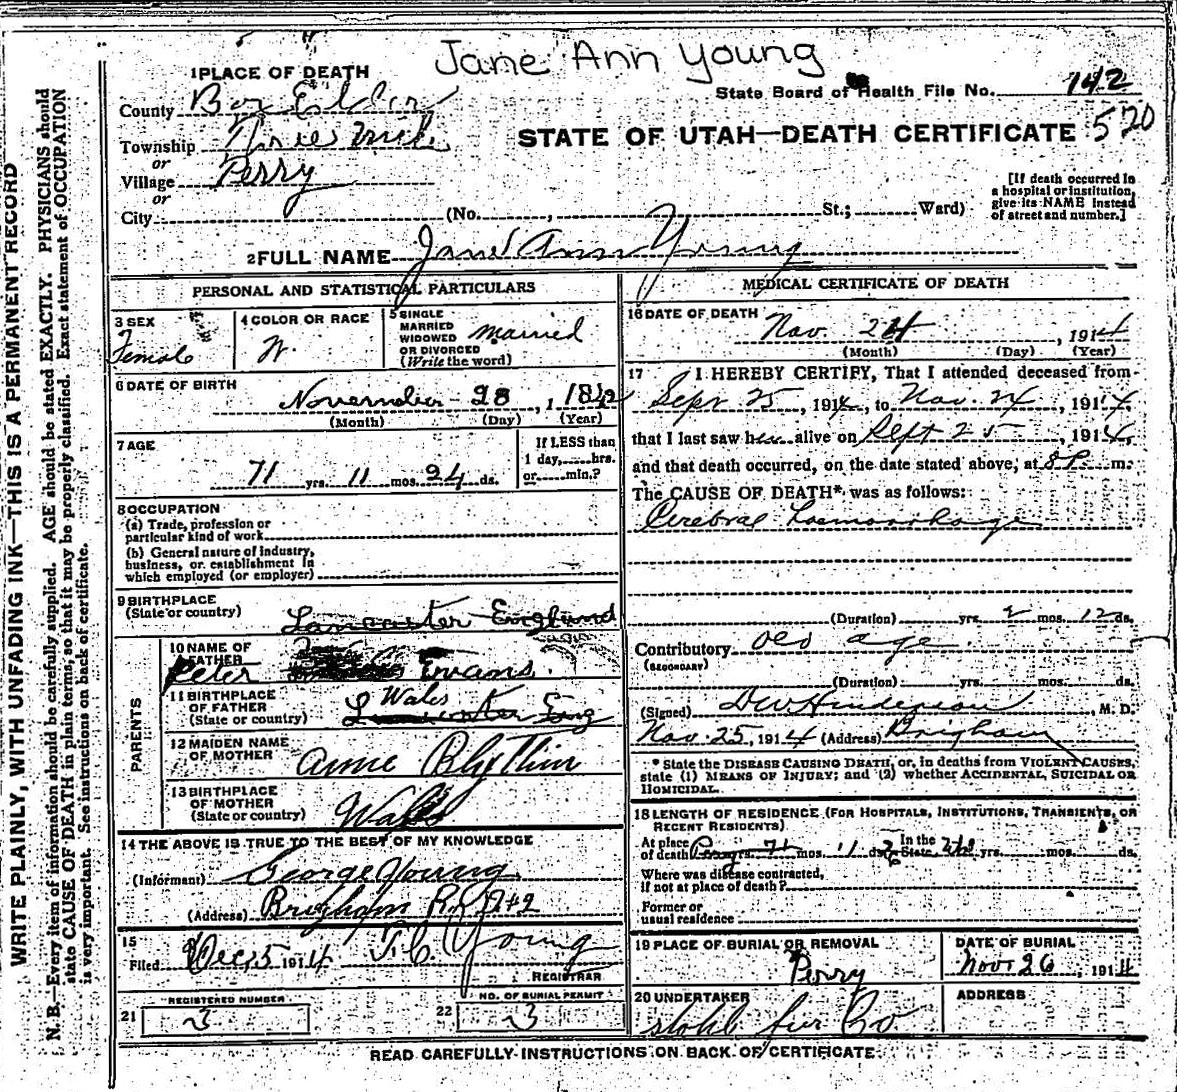 Jane Ann Young
1 PLACE OF DEATH
State Board of Health File No. 142
County Box Elder
STATE OF UTAH—DEATH CERTIFICATE 520
Township Three Mile
or
Village Perry
or
[If death occurred in a hospital or institution, give its NAME instead of street and number.]
City (No. , St.; Ward)
2 FULL NAME Jane Ann Young
PERSONAL AND STATISTICAL PARTICULARS
3 SEX Female
4 COLOR OR RACE W.
5 SINGLE MARRIED WIDOWED OR DIVORCED (Write the word) Married
6 DATE OF BIRTH November 28, 1842
(Month) (Day) (Year)
7 AGE
71 yrs. 11 mos. 24 ds.
If LESS than 1 day, hrs. or min.?
8 OCCUPATION
(a) Trade, profession or particular kind of work
(b) General nature of industry, business, or establishment in which employed (or employer)
9 BIRTHPLACE (State or country) Lancaster England
PARENTS
10 NAME OF FATHER Peter Evans.
11 BIRTHPLACE OF FATHER (State or country) Wales
12 MAIDEN NAME OF MOTHER Anne
13 BIRTHPLACE OF MOTHER (State or country) Wales
14 THE ABOVE IS TRUE TO THE BEST OF MY KNOWLEDGE
(Informant) George Young
(Address) Brigham R.
15
Filed Dec 5 1914 J. C. Young
REGISTRAR
REGISTERED NUMBER
21 3
NO. OF BURIAL PERMIT
22 3
MEDICAL CERTIFICATE OF DEATH
16 DATE OF DEATH Nov. 24, 1914
(Month) (Day) (Year)
17 I HEREBY CERTIFY, That I attended deceased from
Sept 25, 1914, to Nov. 24, 1914,
that I last saw her alive on Sept 25, 1914,
and that death occurred, on the date stated above, at 8 P. m.
The CAUSE OF DEATH* was as follows:
Cerebral Haemorrhage
(Duration) yrs. 2 mos. 12 ds.
Contributory old age
(SECONDARY)
(Duration) yrs. mos. ds.
(Signed) , M. D.
Nov. 25, 1914 (Address) Brigham
* State the DISEASE CAUSING DEATH, or, in deaths from VIOLENT CAUSES,
state (1) MEANS OF INJURY; and (2) whether ACCIDENTAL, SUICIDAL OR
HOMICIDAL.
18 LENGTH OF RESIDENCE (FOR HOSPITALS, INSTITUTIONS, TRANSIENTS, OR
RECENT RESIDENTS)
At place of death yrs. mos. ds. In the State yrs. mos. ds.
Where was disease contracted,
if not at place of death?
Former or
usual residence
19 PLACE OF BURIAL OR REMOVAL Perry
DATE OF BURIAL Nov. 26, 1914
20 UNDERTAKER
ADDRESS
READ CAREFULLY INSTRUCTIONS ON BACK OF CERTIFICATE.
WRITE PLAINLY, WITH UNFADING INK—THIS IS A PERMANENT RECORD
N. B.—Every item of information should be carefully supplied. AGE should be stated EXACTLY. PHYSICIANS should
state CAUSE OF DEATH in plain terms, so that it may be properly classified. Exact statement of OCCUPATION
is very important. See instructions on back of certificate.